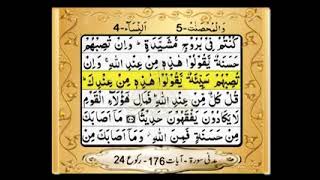 وَالْمُحْصَنٰتُ-5 اَلنِّسَآء-4
كُنْتُمْ فِيْ بُرُوْجٍ مُّشَيَّدَةٍ ؕ وَاِنْ تُصِبْهُمْ
حَسَنَةٌ يَّقُوْلُوْا هٰذِهٖ مِنْ عِنْدِ اللّٰهِ ۚ وَاِنْ
تُصِبْهُمْ سَيِّئَةٌ يَّقُوْلُوْا هٰذِهٖ مِنْ عِنْدِكَ ؕ
قُلْ كُلٌّ مِّنْ عِنْدِ اللّٰهِ ؕ فَمَالِ هٰٓؤُلَآءِ الْقَوْمِ
لَا يَكَادُوْنَ يَفْقَهُوْنَ حَدِيْثًا ۞ مَاۤ اَصَابَكَ
مِنْ حَسَنَةٍ فَمِنَ اللّٰهِ ؗ وَمَاۤ اَصَابَكَ مِنْ
مدنی سورۃ - آیات 176 - رکوع 24